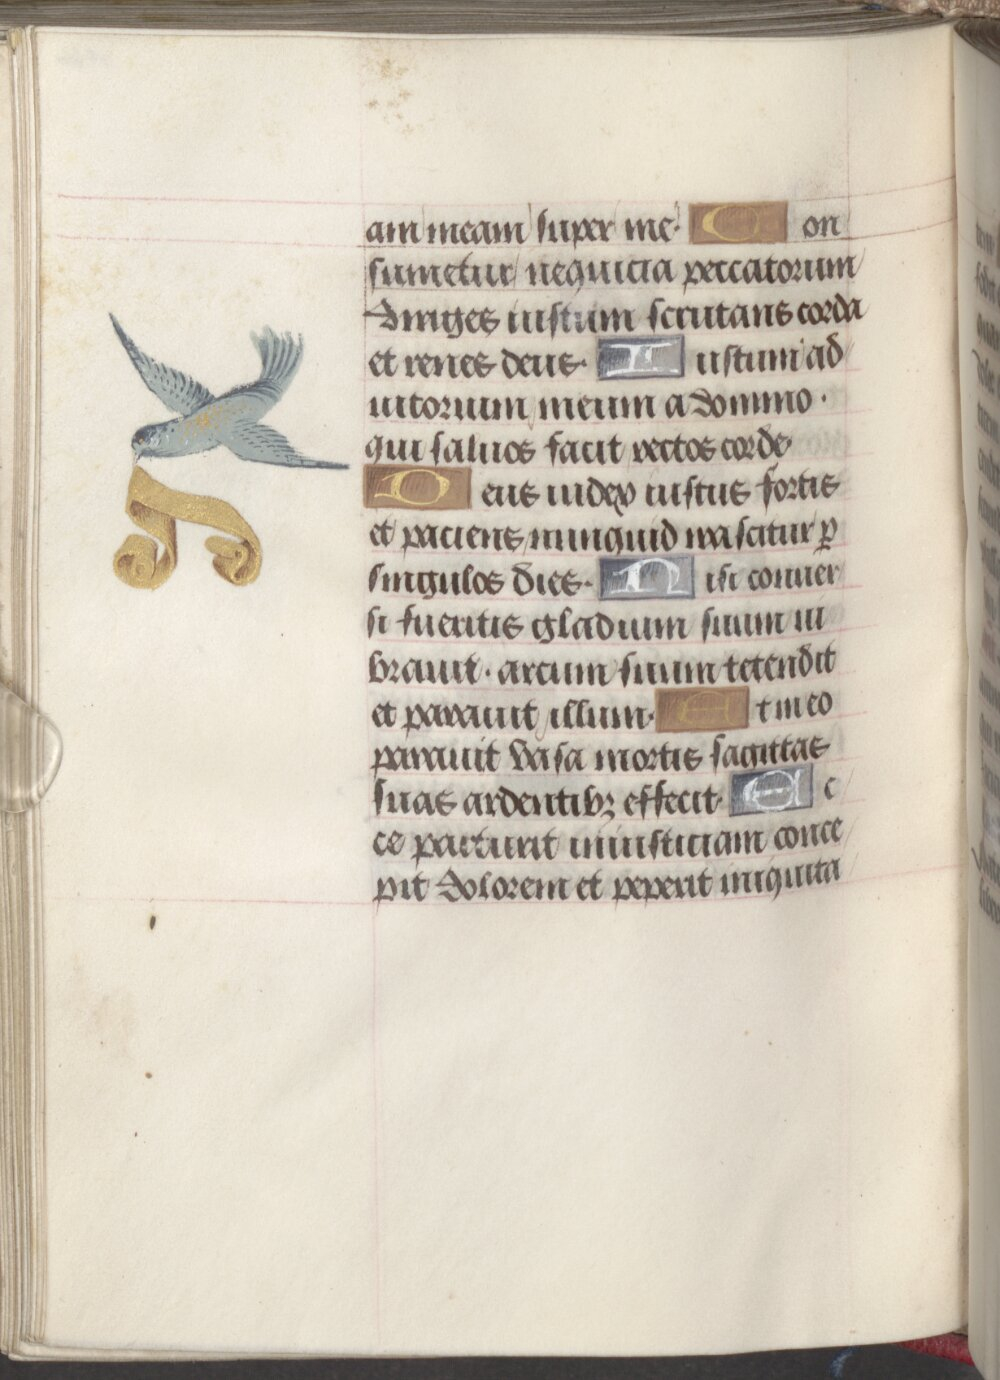 am meam super me· Con
sumetur nequicia peccatorum
Diriges iustum scrutans corda
et renes deus· Iustum ad
iutorium meum a domino·
qui saluos facit rectos corde
Deus iudex iustus fortis
et paciens nunquid irascitur p̱
singulos dies· Nisi conuer
si fueritis gladium suum ui
brauit· arcum suum tetendit
et parauit illum· Et in eo
parauit vasa mortis sagittas
suas ardentibꝫ effecit· Ec
ce parturit iniusticiam conce
pit dolorem et peperit iniquita